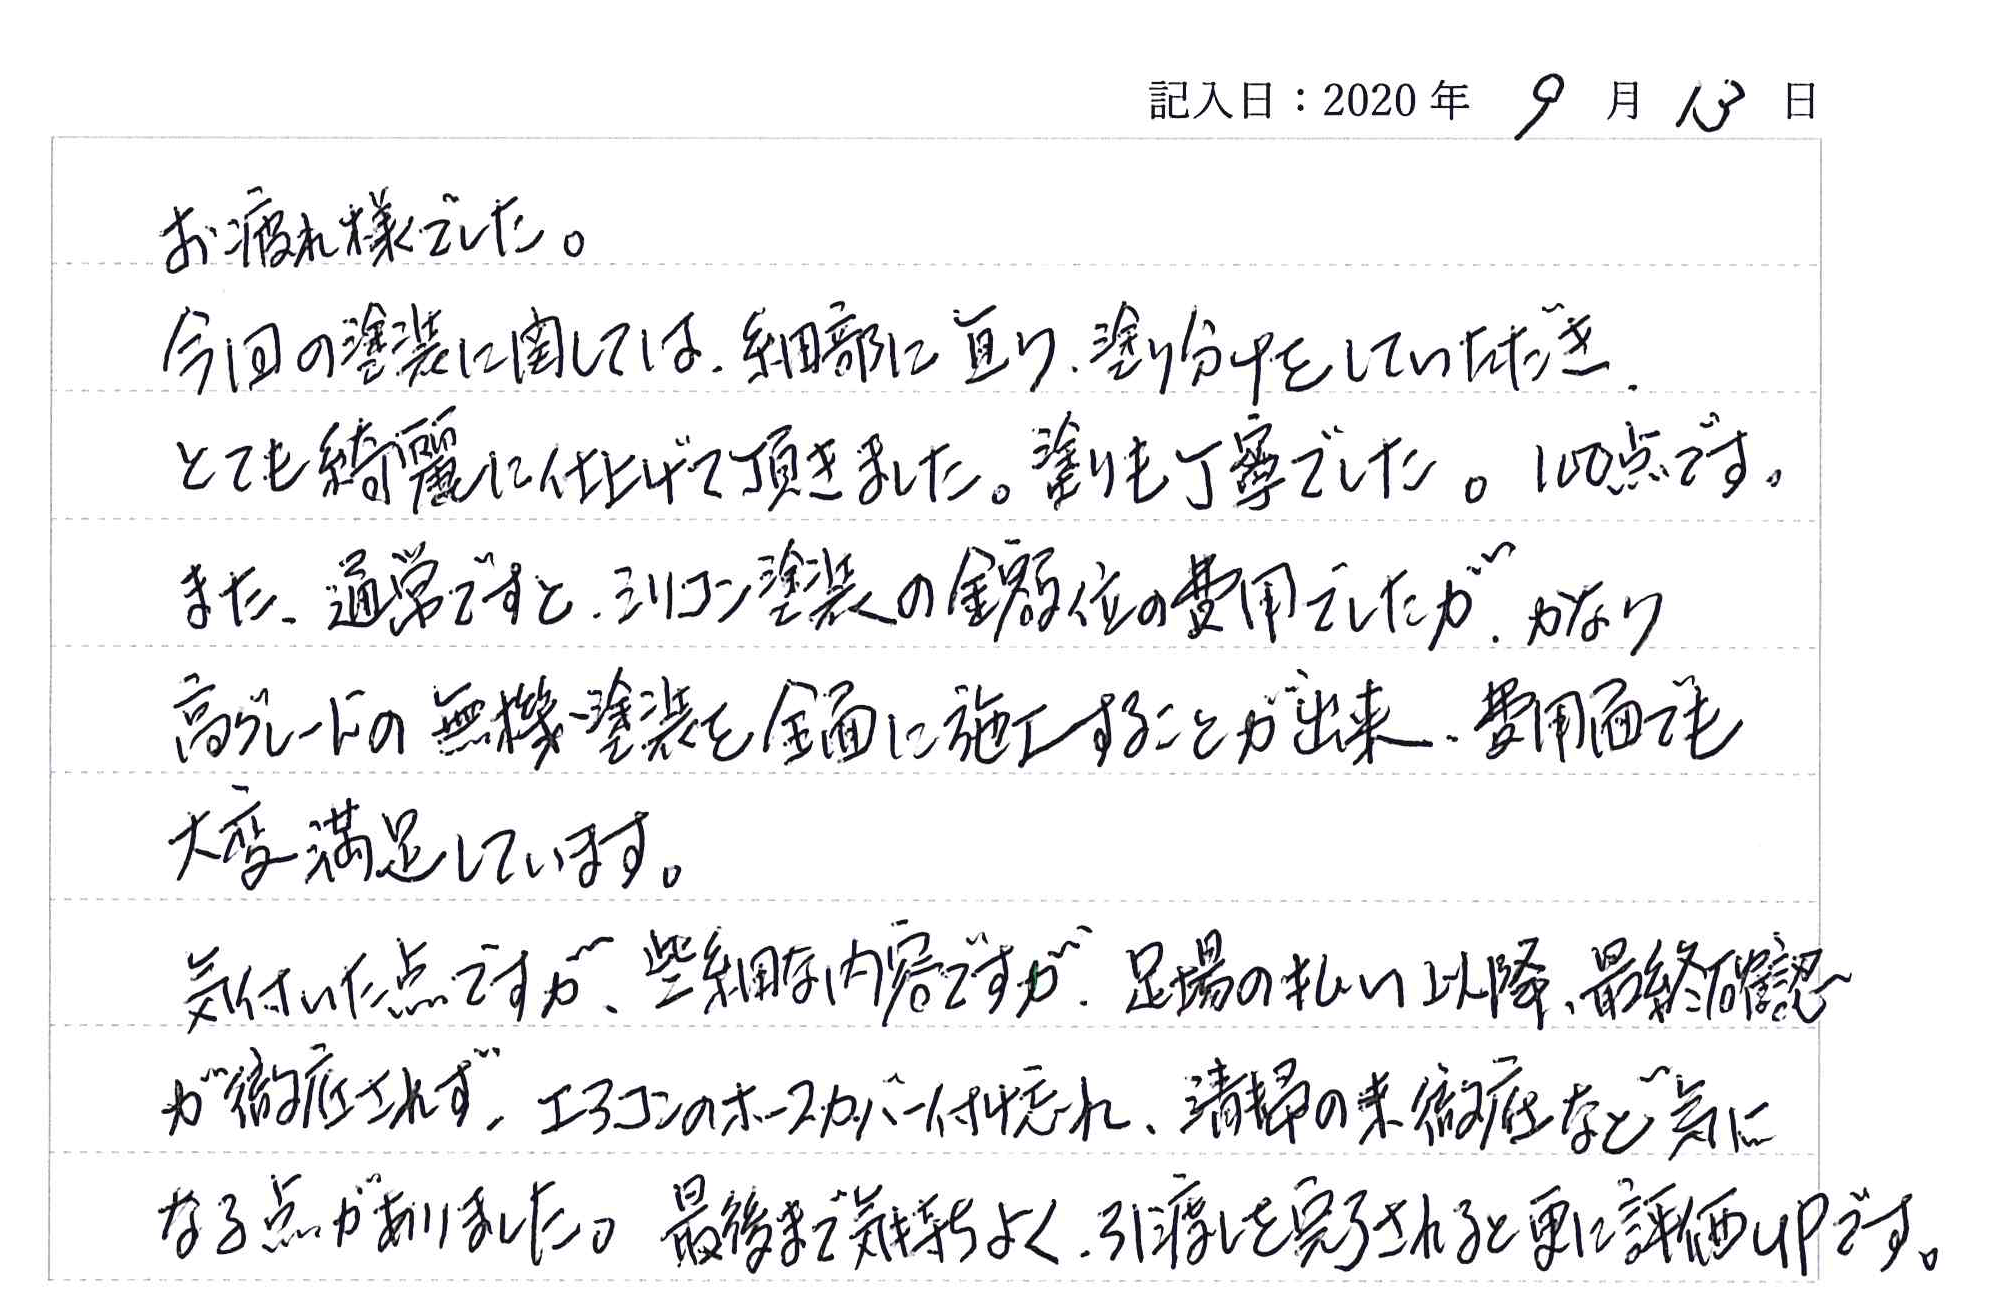 記入日：2020年 9 月 13 日
お疲れ様でした。
今回の塗装に関しては、細部に亘り、塗り分けをしていただき、
とても綺麗に仕上げて頂きました。塗りも丁寧でした。100点です。
また、通常ですと、シリコン塗装の金額位の費用でしたが、かなり
高グレードの無機塗装を全面に施工することが出来、費用面でも
大変満足しています。
気付いた点ですが、些細な内容ですが、足場の払い以降、最終確認
が徹底されず、エアコンのホースカバー付け忘れ、清掃の未徹底など気に
なる点がありました。最後まで気持ちよく、引渡しを完了されると更に評価UPです。